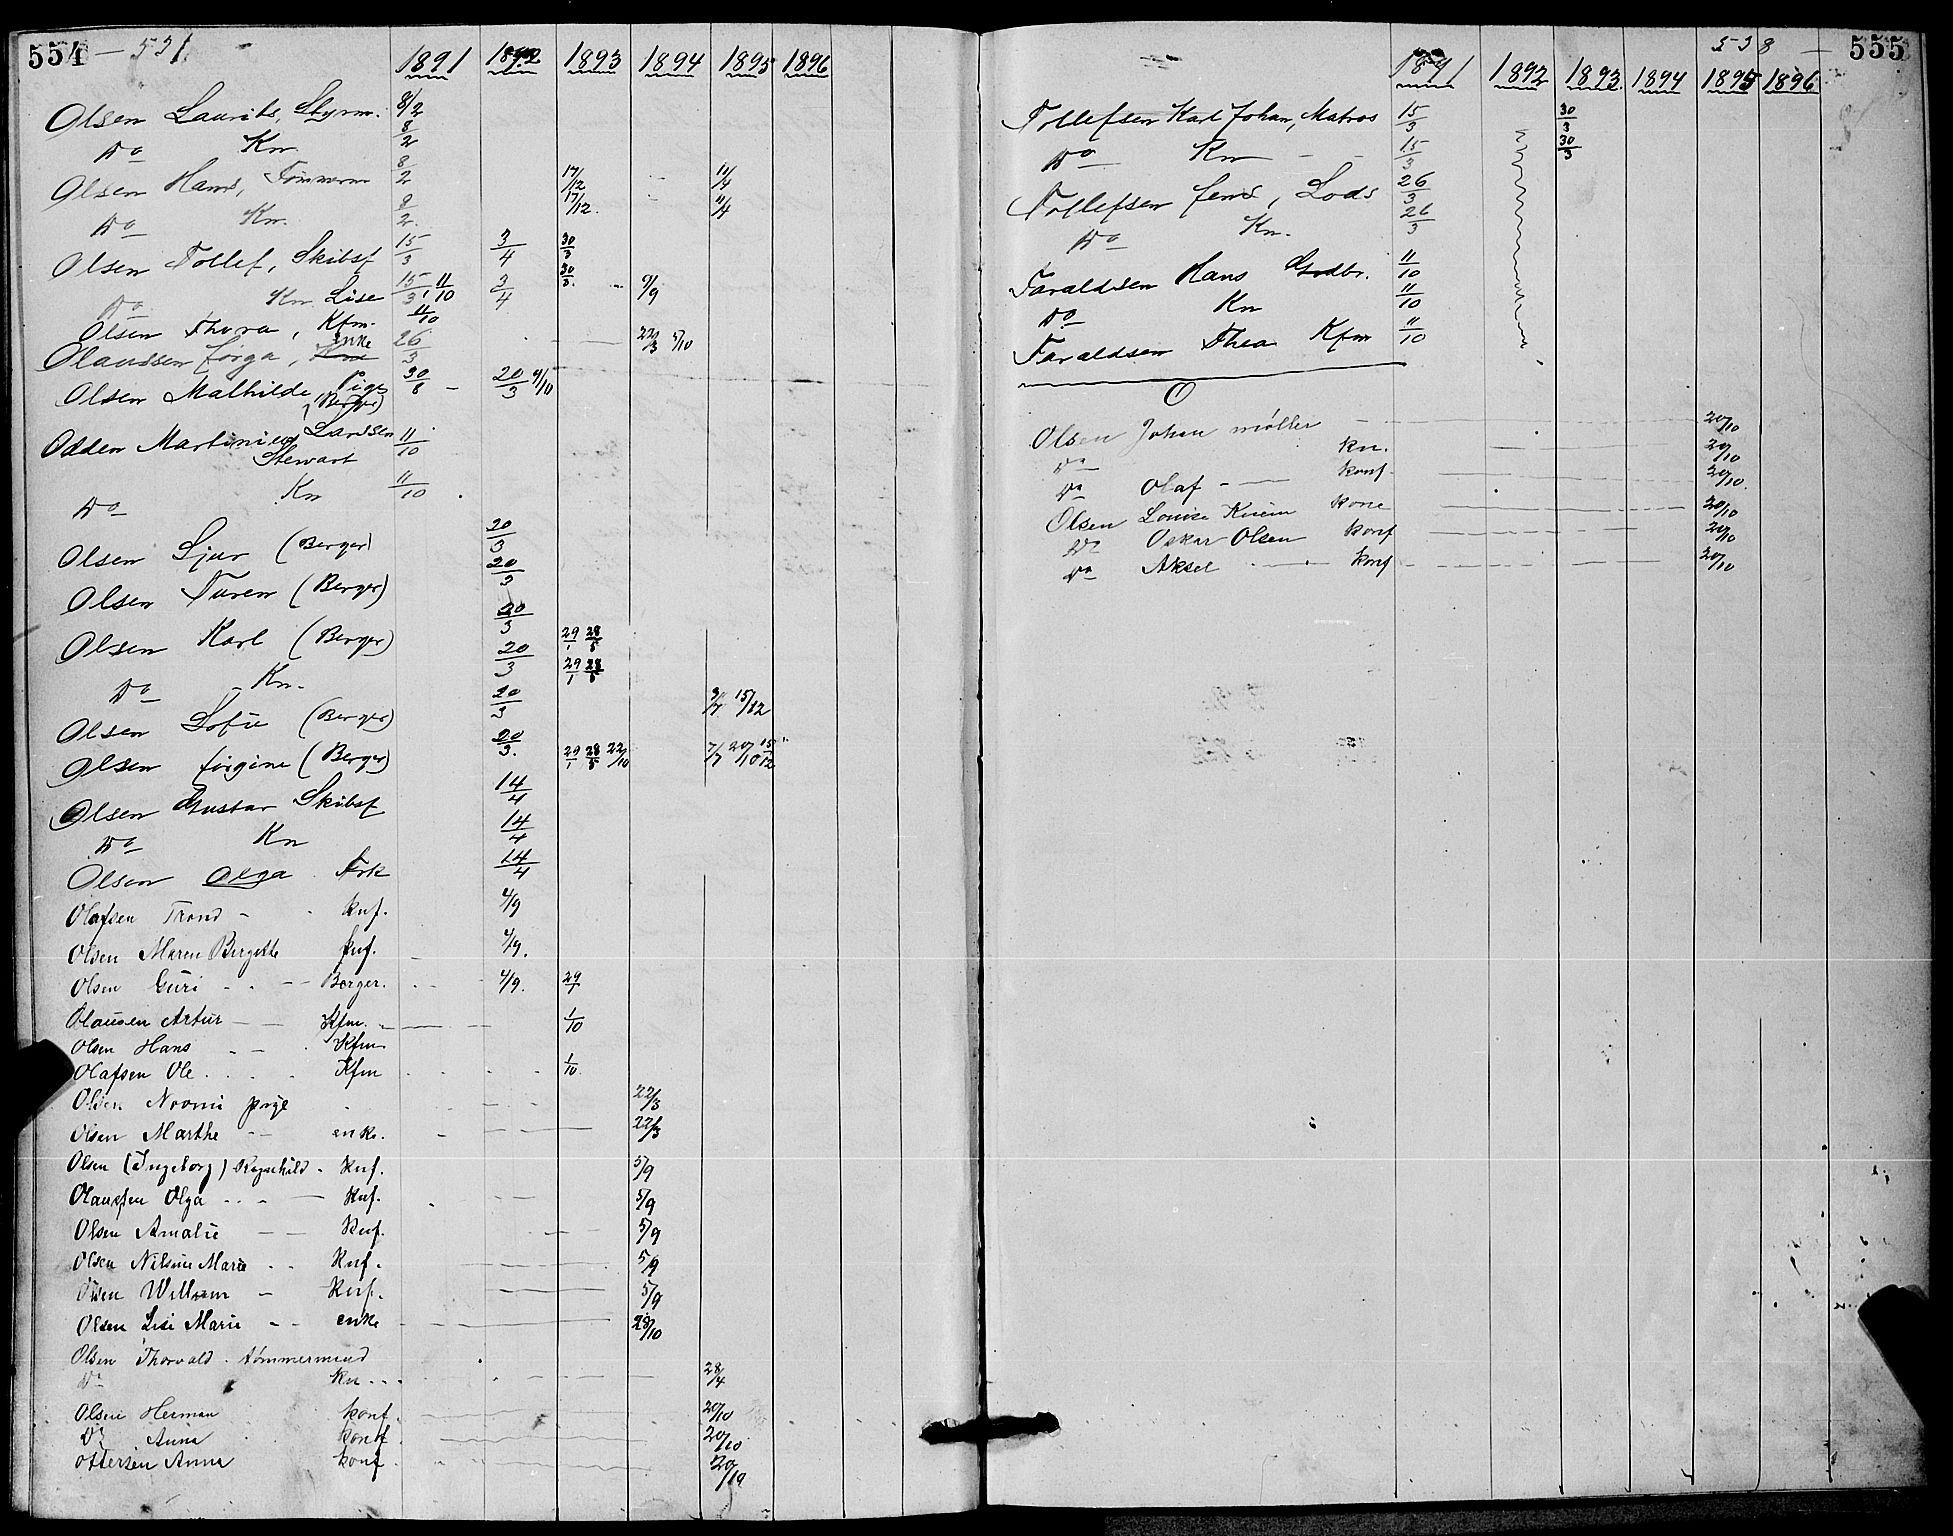 554 — 531
1891 1892 1893 1894 1895 1896
Olsen Laurits, Styrm. 8/2
Do Kn. 8/2
Olsen Hans, Tømmerm 8/2 17/12 11/4
Do Kn. 8/2. 17/12. 11/4
Olsen Tollef, Skibsf 15/3 3/4 30/3
Do Kn. Lise 15/3, 11/10 3/4 30/3. 9/9
Olsen Thora, Kfm. 11/10
Olaussen Jørga, enke 26/3 22/3 5/10
Olsen Mathilde, Pige (Berger) 30/8 - 20/3 4/10
Odden Martinius Larssen 11/10
Stewart
Do Kn 11/10
Olsen Sjur (Berger) 20/3
Olsen Turen (Berger) 20/3
Olsen Karl (Berger) 20/3 29/1 28/5
Do Kn. 20/3 29/1 28/5
Olsen Sofie (Berger) 20/3 7/7 15/12
Olsen Jørgine (Berger) 20/3. 29/1 28/5 22/10 7/7 20/10 15/12
Olsen Gustav Skibsf 14/4
Do Kn 14/4
Olsen Olga Frk 14/4
Olafsen Trond - knf. 4/9
Olsen Maren Bergitte knf. 4/9.
Olsen Guri - - - Berger. 4/9. 29/1
Olausen Artur — — Kfm. 1/10
Olsen Hans - — Kfm
Olafsen Ole . . . . Kfm 1/10.
Olsen Noomi pige 22/3
Olsen Marthe — enke. 22/3
Olsen (Ingeborg) Ragnhild - knf. 5/9
Olaussen Olga - - - — knf. 5/9
Olsen Amalie — — knf. 5/9
Olsen Nilsine Marie - - knf. 5/9
Olsen Willum - knf. 5/9
Olsen Lise Marie - - enke 28/10
Olsen Thorvald - tømmermend
Do kn - - - 28/4
Olsen Herman konf. 20/10
Do Anna konf 20/10
Ottersen Anna konf 20/10
538 — 555
1891 1892 1893 1894 1895 1896
Tollefsen Karl Johan, Matros 15/3 30/3
Do Kn — - 15/3 30/3
Tollefsen Jens, Lods 26/3
Do Kn. 26/3
Taraldsen Hans Godbr. 11/10
Do Kn 11/10
Taraldsen Thea Kfm 11/10
O
Olsen Johan møller 20/10
Do kn. 20/10
Do Olaf - — konf 20/10.
Olsen Louise kone 20/10
Do Oskar Olsen konf 20/10
Do Aksel konf 20/10